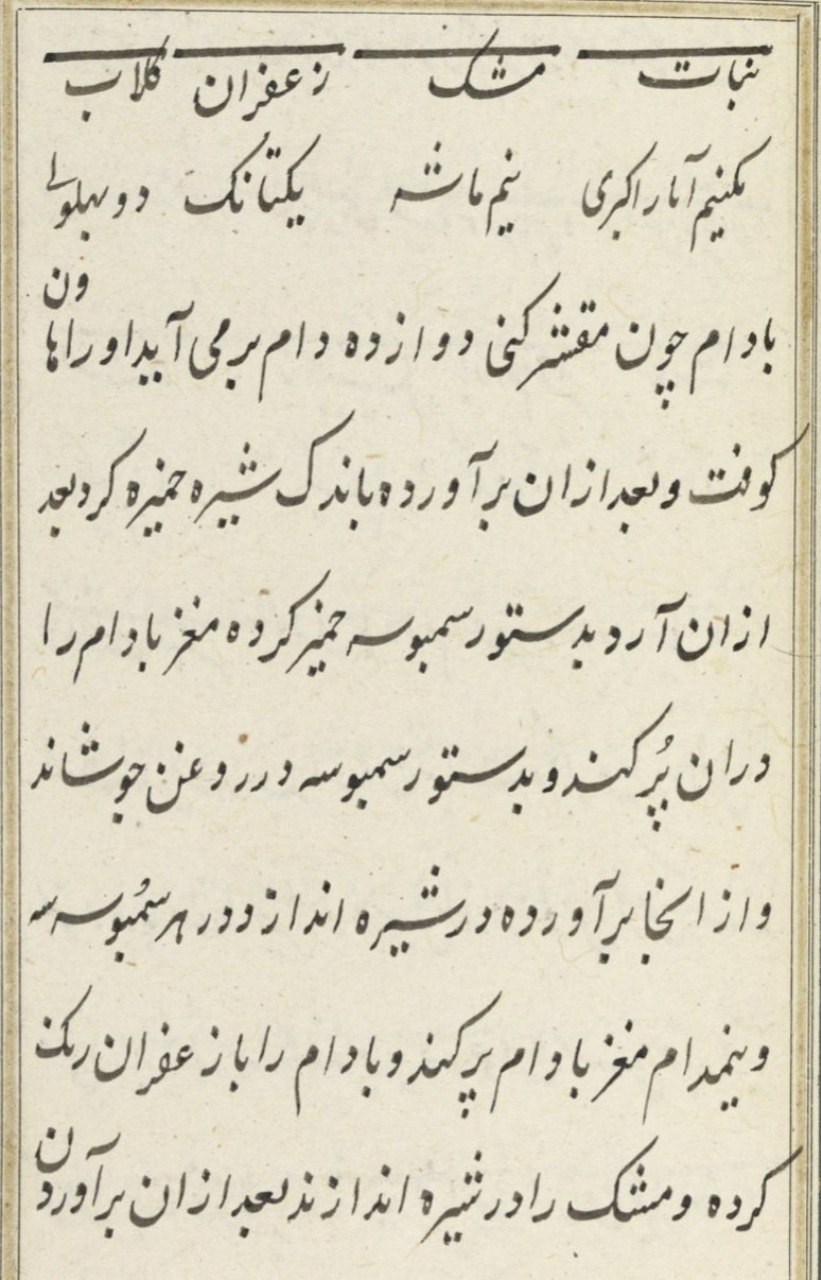 نبات مشک زعفران گلاب
یکنیم آثار اکبری نیم ماشه یکتانک دو بهلولی
بادام چون مقشر کنی دوازده دام بر می آید او را هاون
کوفت و بعد ازان برآورده باندک شیره خمیره کرد بعد
ازان آرد بدستور سمبوسه خمیر کرده مغز بادام را
دران پُر کند و بدستور سمبوسه در روغن جوشاند
و از انجا برآورده در شیره اندازد و در هر سمُبوسه سه
و نیمدام مغز بادام پر کنند و بادام را با زعفران رنک
کرده و مشک را در شیره اندازند بعد ازان برآوردن